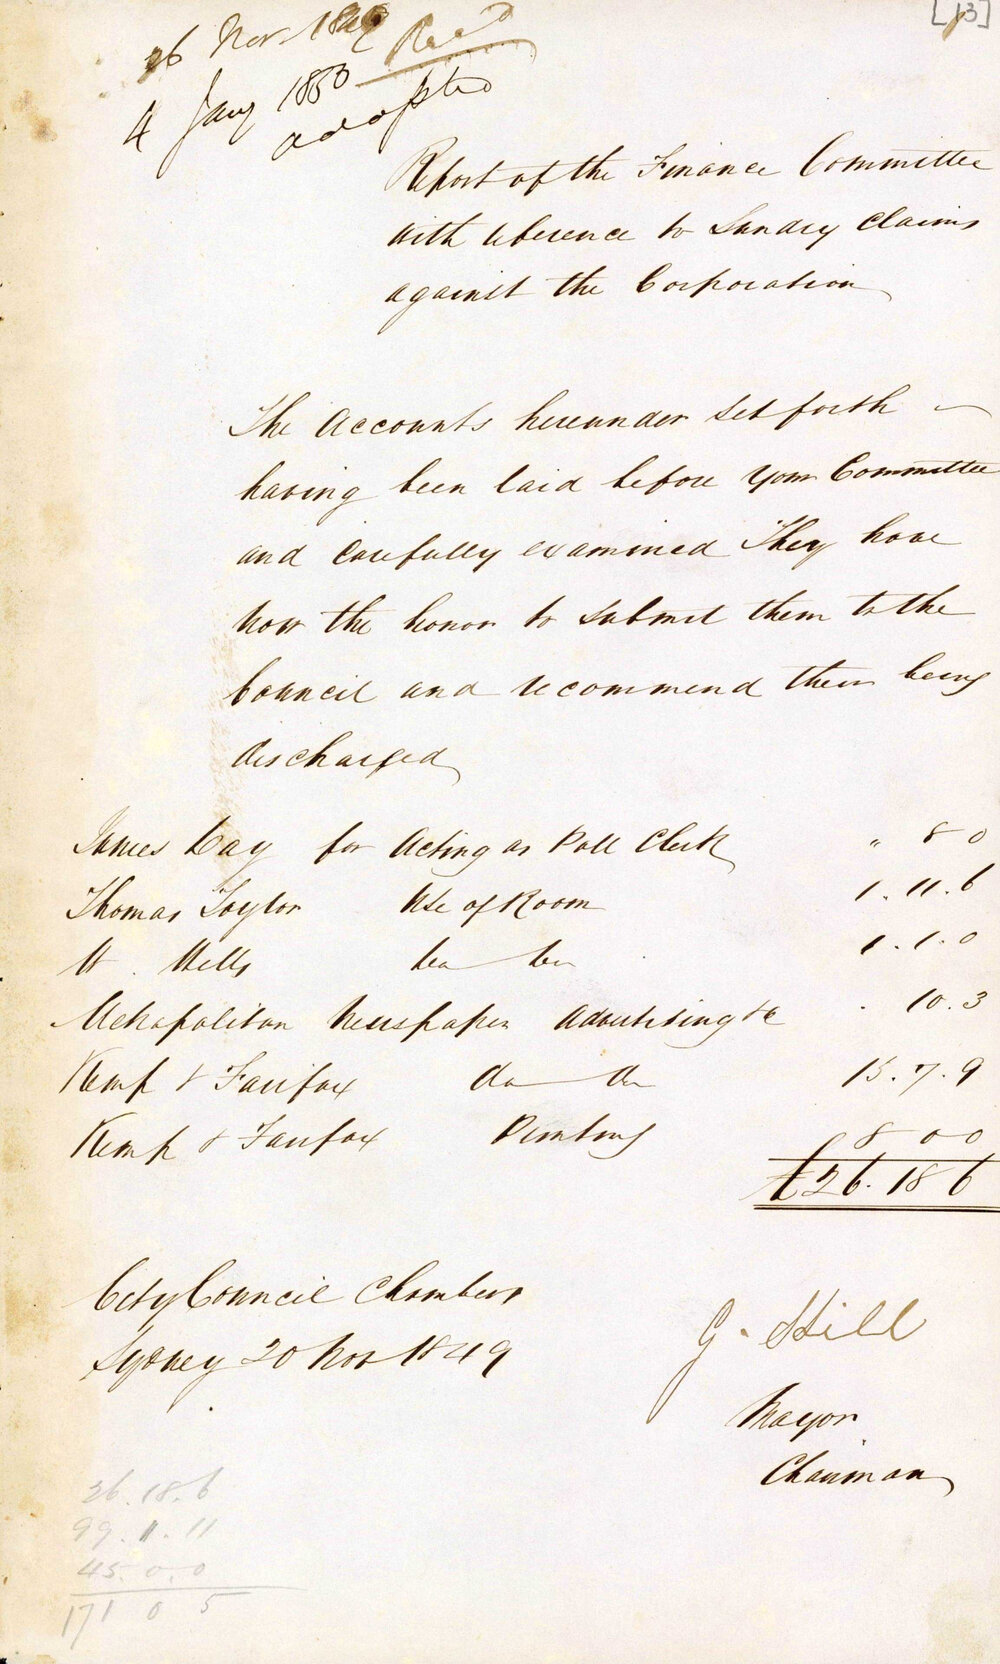 [13]
26 Nov 1849 Recd
4 Jany 1850
adopted
Report of the Finance Committee
with reference to Sundry Claims
against the Corporation
The Accounts hereunder set forth
having been laid before your Committee
and Carefully examined They have
now the honor to Submit them to the
Council and recommend them being
discharged
James Day for Acting as Poll Clerk " 8 0
Thomas Taylor Use of Room 1. 11. 6
W. Wells do do 1. 1. 0
Metropolitan Newspaper Advertising &c . 10. 3
Kemp & Fairfax do do 15. 7. 9
Kemp & Fairfax Printing 8 0 0
£26. 18 6
City Council Chambers
Sydney 20 Nov 1849
G. Hill
Mayor
Chairman
26. 18. 6
99. 1. 11
45. 0. 0
171 0 5